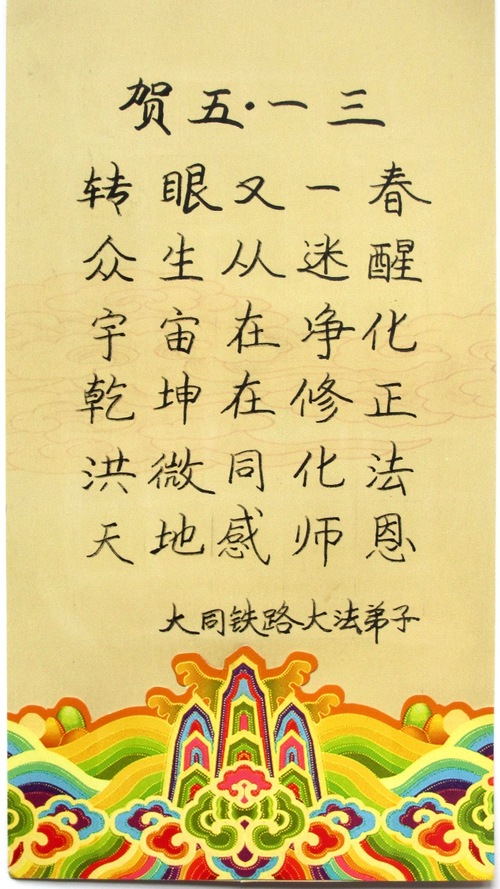 贺五·一三
转眼又一春
众生从迷醒
宇宙在净化
乾坤在修正
洪微同化法
天地感师恩
大同铁路大法弟子